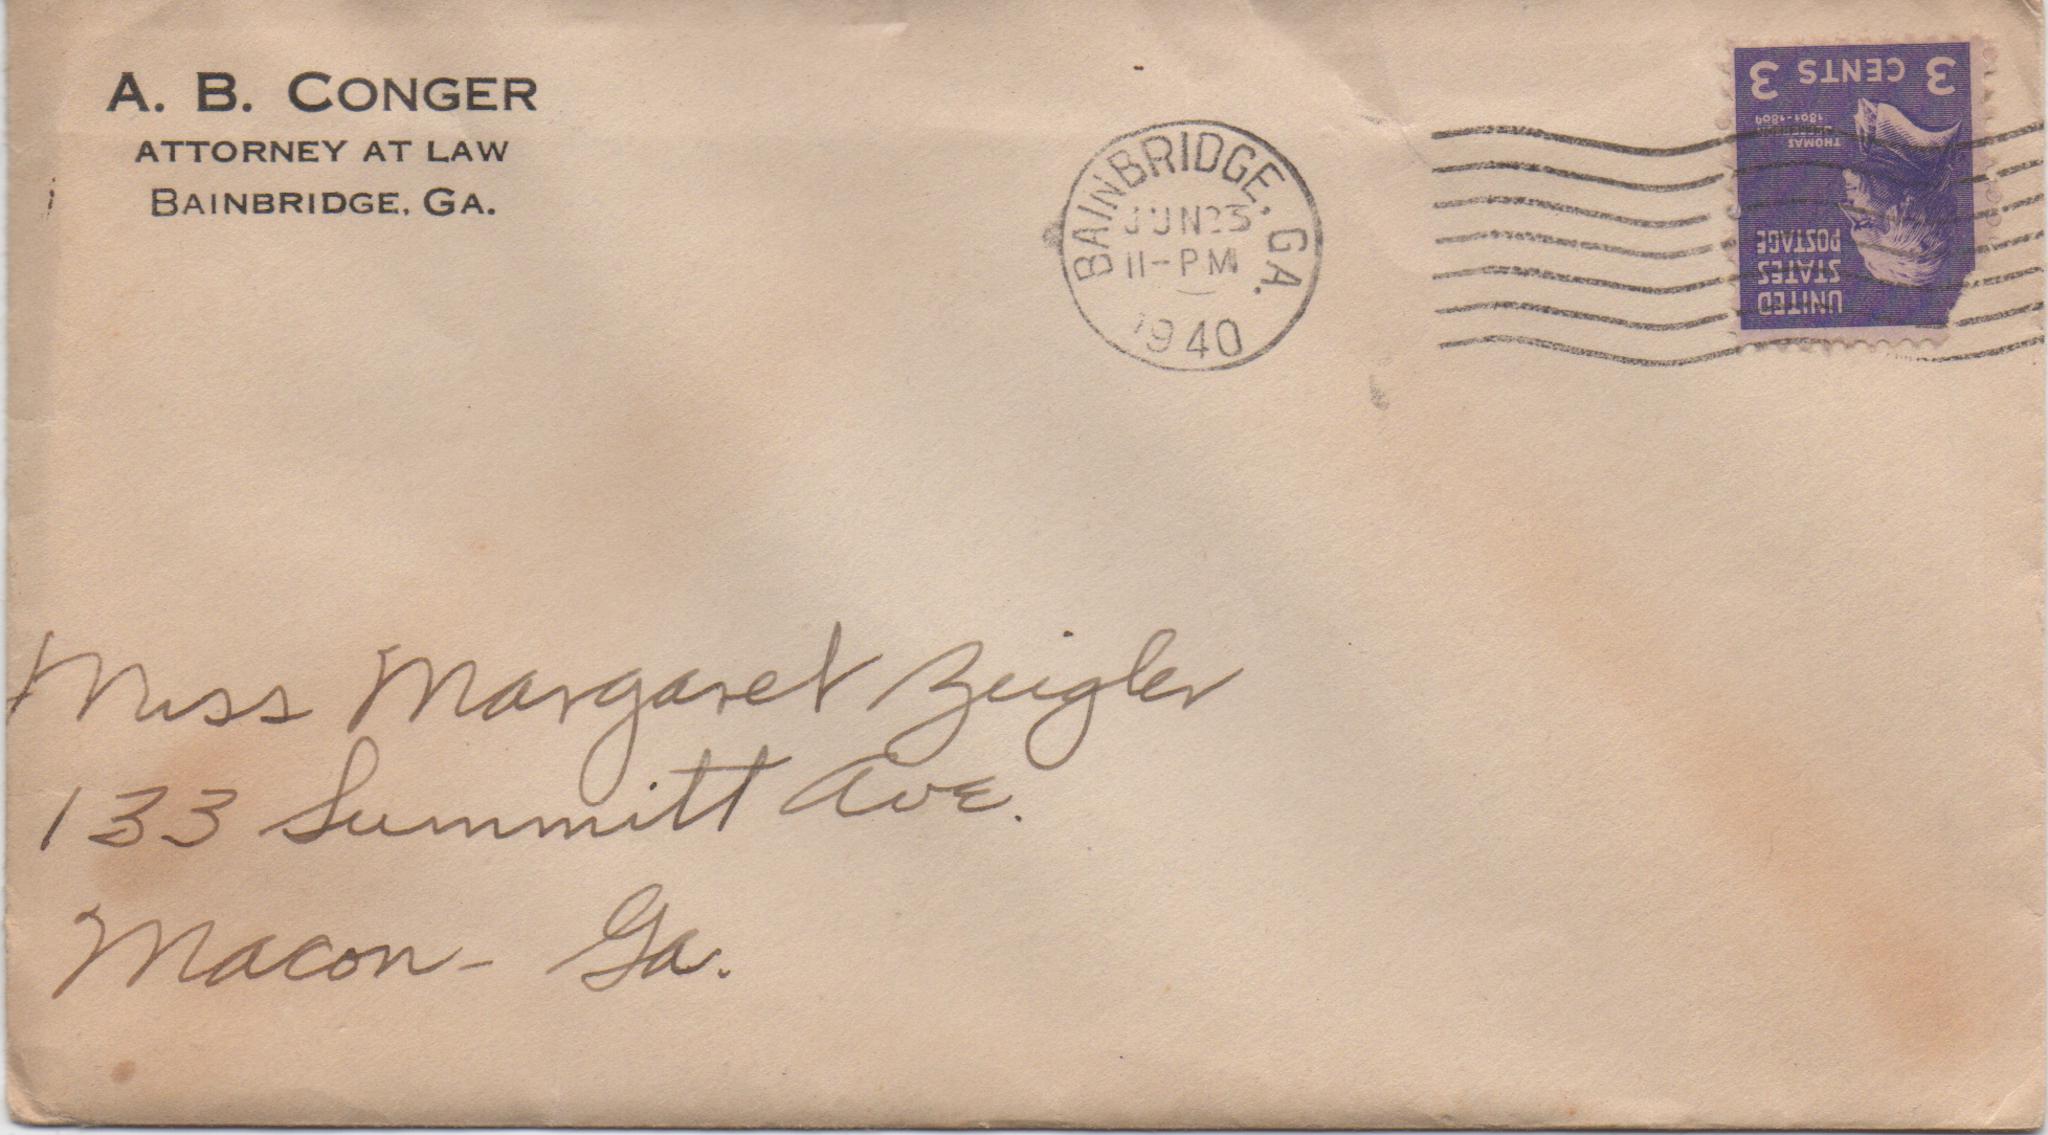 A. B. CONGER
ATTORNEY AT LAW
BAINBRIDGE, GA.
BAINBRIDGE, GA.
JUN 23
11-PM
1940
3 CENTS 3
THOMAS
JEFFERSON
1801-1809
UNITED
STATES
POSTAGE
Miss Margaret Zeigler
133 Summitt Ave.
Macon - Ga.